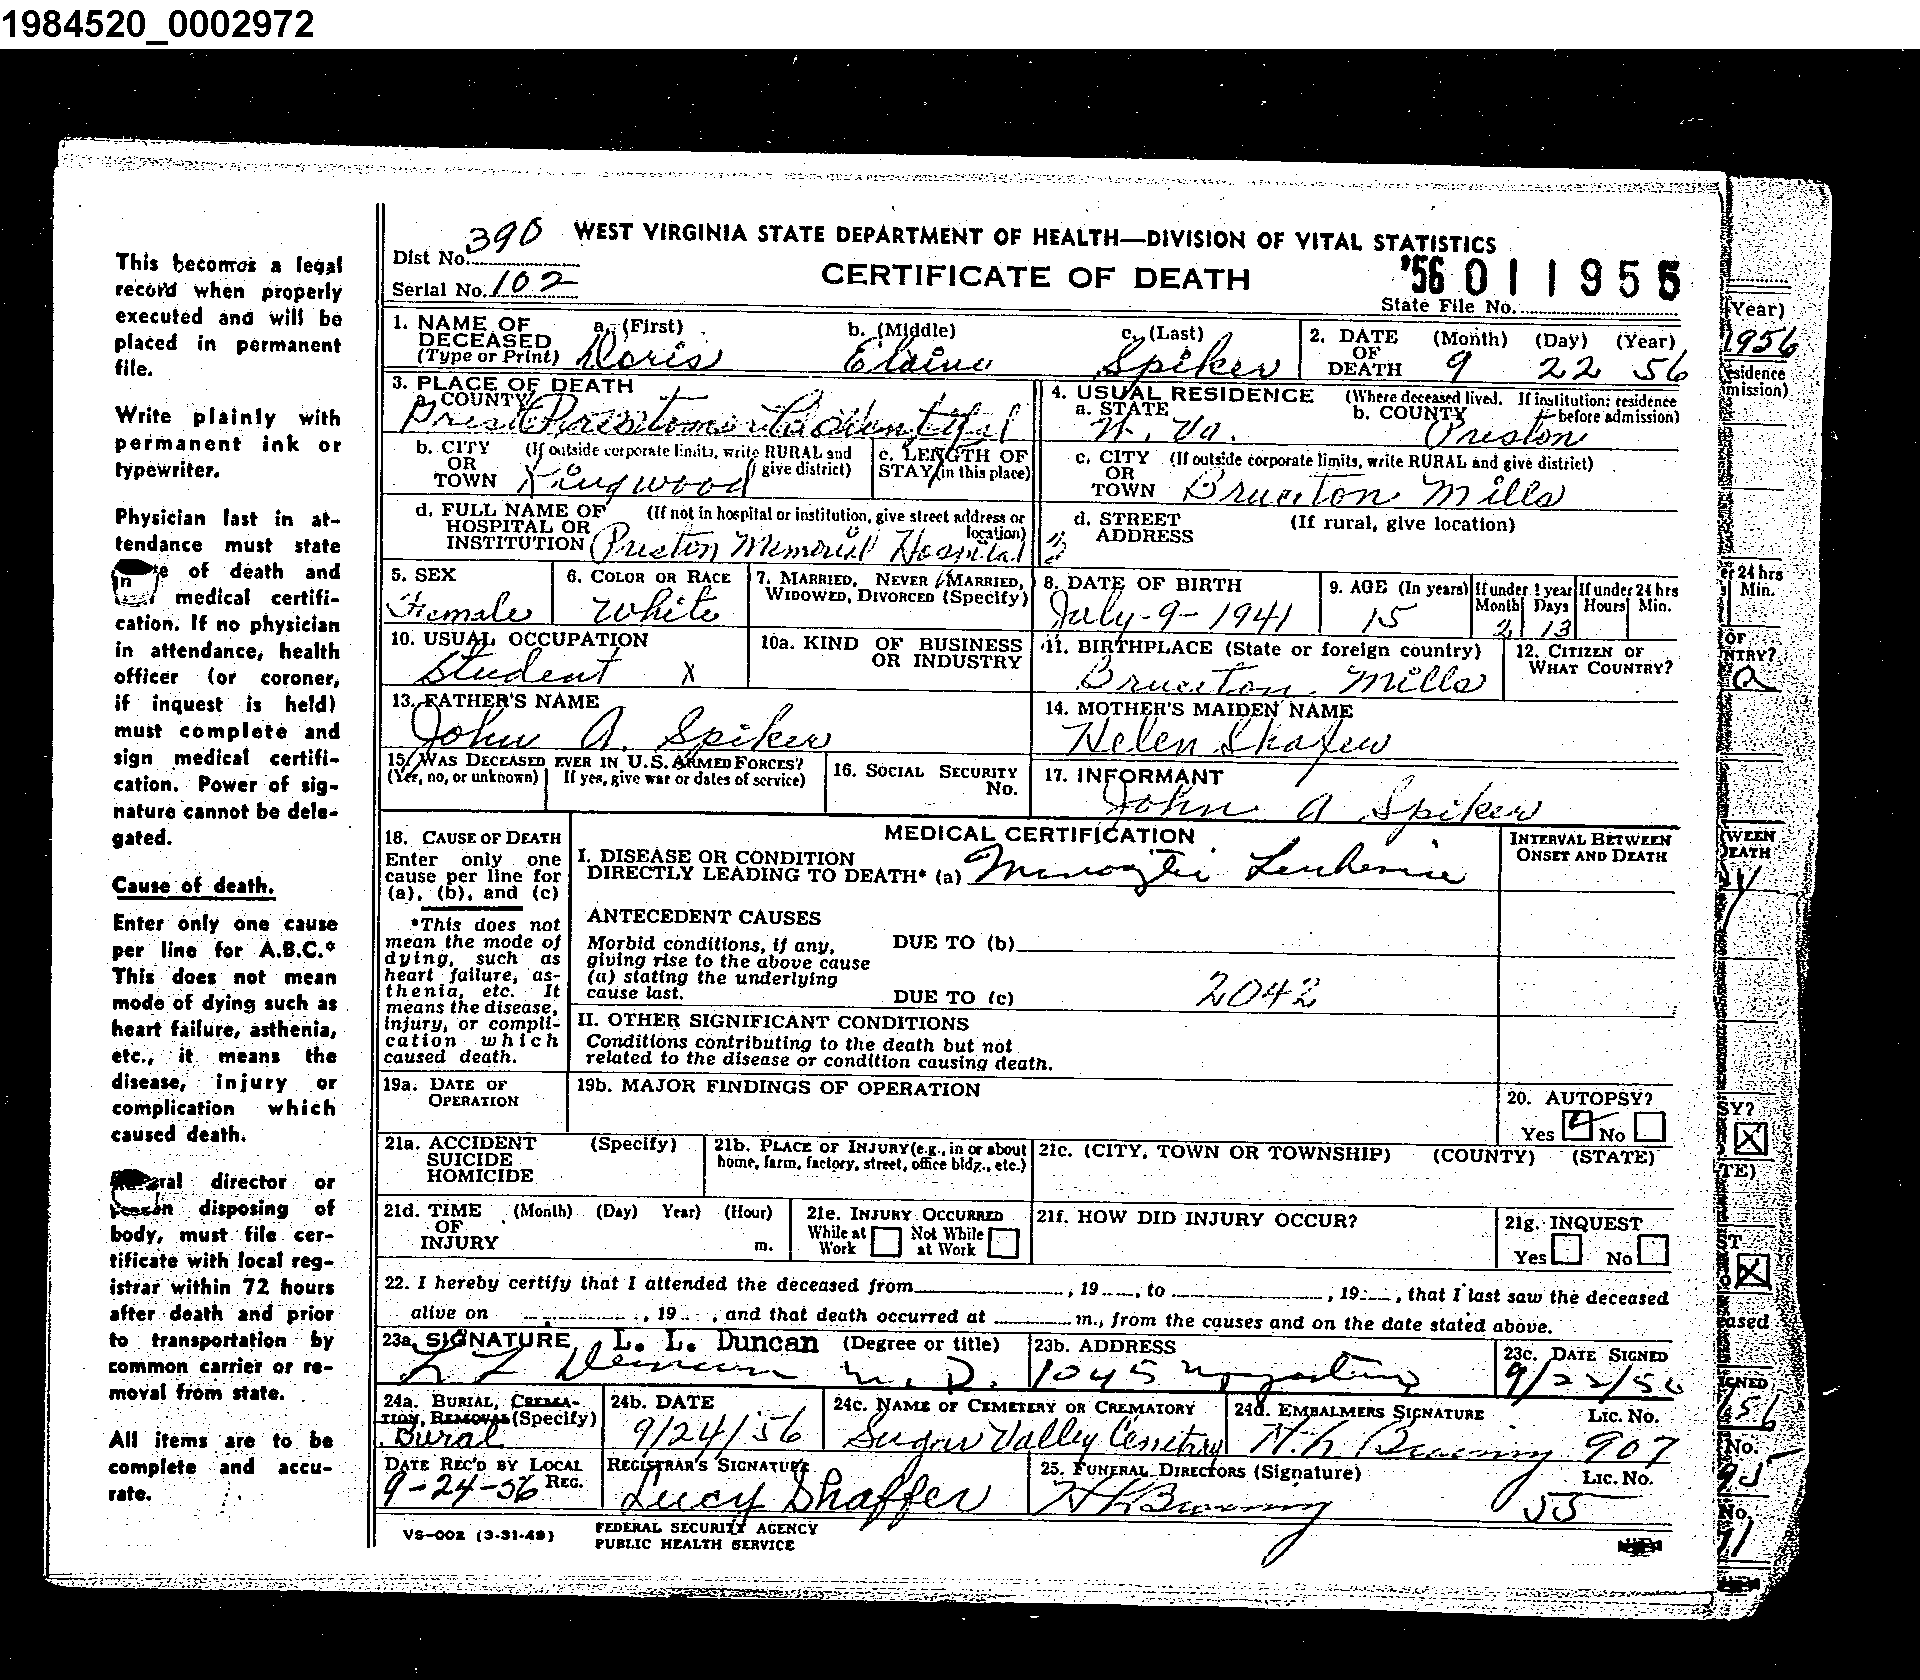 1984520_0002972
This becomes a legal
record when properly
executed and will be
placed in permanent
file.
Write plainly with
permanent ink or
typewriter.
Physician last in at-
tendance must state
of death and
medical certifi-
cation. If no physician
in attendance, health
officer (or coroner,
if inquest is held)
must complete and
sign medical certifi-
cation. Power of sig-
nature cannot be dele-
gated.
Cause of death.
Enter only one cause
per line for A.B.C.*
This does not mean
mode of dying such as
heart failure, asthenia,
etc., it means the
disease, injury or
complication which
caused death.
director or
disposing of
body, must file cer-
tificate with local reg-
istrar within 72 hours
after death and prior
to transportation by
common carrier or re-
moval from state.
All items are to be
complete and accu-
rate.
Dist No. 390 WEST VIRGINIA STATE DEPARTMENT OF HEALTH—DIVISION OF VITAL STATISTICS
Serial No. 102 CERTIFICATE OF DEATH '56 011955
State File No.
1. NAME OF DECEASED (Type or Print) a. (First) Doris b. (Middle) Elaine c. (Last) Spiker
2. DATE OF DEATH (Month) (Day) (Year) 9 22 56
3. PLACE OF DEATH
a. COUNTY
4. USUAL RESIDENCE (Where deceased lived. If institution: residence before admission)
a. STATE W. Va. b. COUNTY Preston
b. CITY OR TOWN (If outside corporate limits, write RURAL and give district) Kingwood
c. LENGTH OF STAY (in this place)
c. CITY OR TOWN (If outside corporate limits, write RURAL and give district) Bruceton Mills
d. FULL NAME OF HOSPITAL OR INSTITUTION (If not in hospital or institution, give street address or location) Preston Memorial Hospital
d. STREET ADDRESS (If rural, give location)
5. SEX Female
6. COLOR OR RACE White
7. MARRIED, NEVER MARRIED, WIDOWED, DIVORCED (Specify)
8. DATE OF BIRTH July-9-1941
9. AGE (In years) 15 If under 1 year Month 2 Days 13 If under 24 hrs Hours Min.
10. USUAL OCCUPATION Student X
10a. KIND OF BUSINESS OR INDUSTRY
11. BIRTHPLACE (State or foreign country) Bruceton Mills
12. CITIZEN OF WHAT COUNTRY?
13. FATHER'S NAME John A. Spiker
14. MOTHER'S MAIDEN NAME Helen
15. WAS DECEASED EVER IN U.S. ARMED FORCES?
(Yes, no, or unknown) If yes, give war or dates of service)
16. SOCIAL SECURITY No.
17. INFORMANT John A Spiker
18. CAUSE OF DEATH
Enter only one
cause per line for
(a), (b), and (c)
*This does not
mean the mode of
dying, such as
heart failure, as-
thenia, etc. It
means the disease,
injury, or compli-
cation which
caused death.
MEDICAL CERTIFICATION
INTERVAL BETWEEN ONSET AND DEATH
I. DISEASE OR CONDITION
DIRECTLY LEADING TO DEATH* (a)
ANTECEDENT CAUSES
Morbid conditions, if any,
giving rise to the above cause
(a) stating the underlying
cause last.
DUE TO (b)
DUE TO (c) 2042
II. OTHER SIGNIFICANT CONDITIONS
Conditions contributing to the death but not
related to the disease or condition causing death.
19a. DATE OF OPERATION
19b. MAJOR FINDINGS OF OPERATION
20. AUTOPSY?
Yes No
21a. ACCIDENT SUICIDE HOMICIDE (Specify)
21b. PLACE OF INJURY (e.g., in or about home, farm, factory, street, office bldg., etc.)
21c. (CITY, TOWN OR TOWNSHIP) (COUNTY) (STATE)
21d. TIME OF INJURY (Month) (Day) Year) (Hour) m.
21e. INJURY OCCURRED
While at Work Not While at Work
21f. HOW DID INJURY OCCUR?
21g. INQUEST
Yes No
22. I hereby certify that I attended the deceased from , 19 , to , 19 , that I last saw the deceased
alive on , 19 , and that death occurred at m., from the causes and on the date stated above.
23a. SIGNATURE L. L. Duncan (Degree or title)
L L Duncan M.D.
23b. ADDRESS 1045
23c. DATE SIGNED 9/22/56
24a. BURIAL, CREMATION, REMOVAL (Specify) Burial
24b. DATE 9/24/56
24c. NAME OF CEMETERY OR CREMATORY Sugar Valley Cemetery
24d. EMBALMERS SIGNATURE Lic. No. 907
DATE REC'D BY LOCAL REG. 9-24-56
REGISTRAR'S SIGNATURE Lucy Shaffer
25. FUNERAL DIRECTORS (Signature) Lic. No. 55
VS-002 (3-31-49)
FEDERAL SECURITY AGENCY
PUBLIC HEALTH SERVICE
Year)
1956